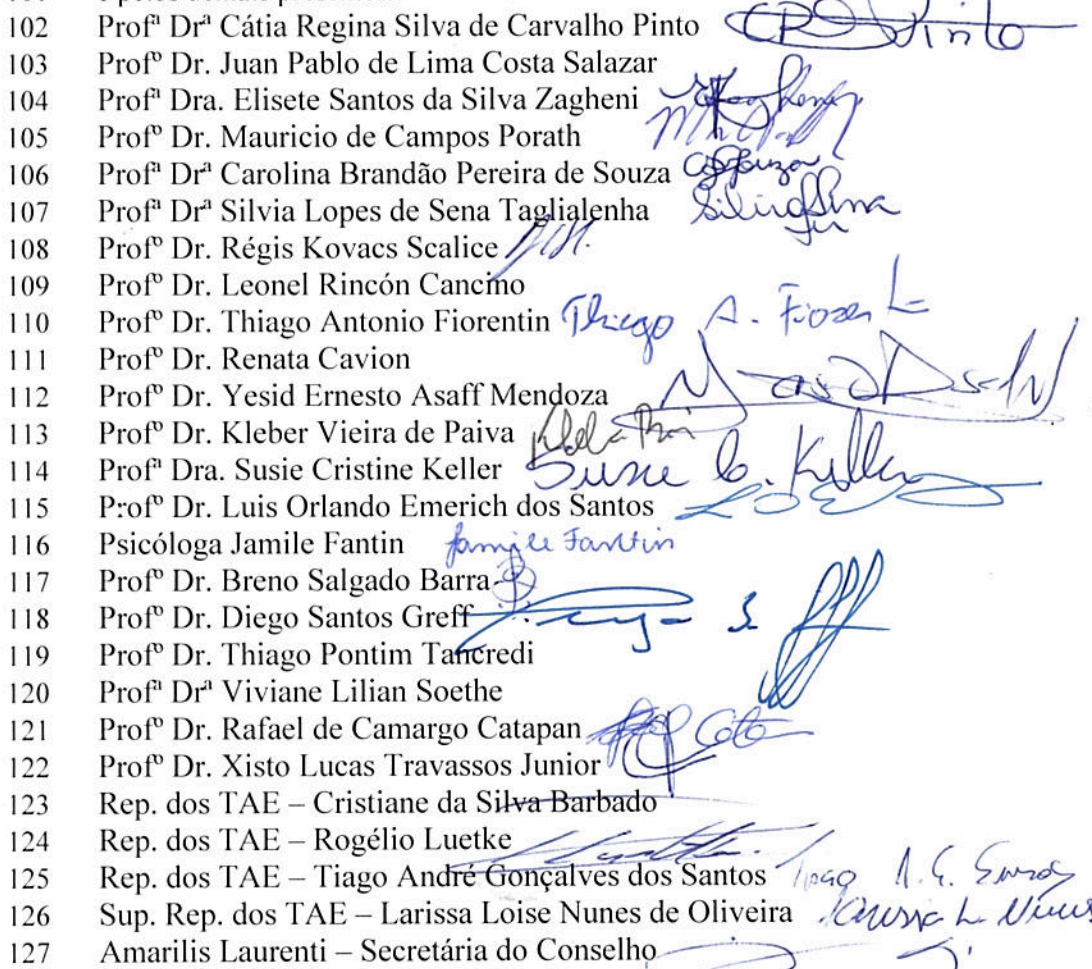 102 Profª Drª Cátia Regina Silva de Carvalho Pinto
103 Profº Dr. Juan Pablo de Lima Costa Salazar
104 Profª Dra. Elisete Santos da Silva Zagheni
105 Profº Dr. Mauricio de Campos Porath
106 Profª Drª Carolina Brandão Pereira de Souza
107 Profª Drª Silvia Lopes de Sena Taglialenha
108 Profº Dr. Régis Kovacs Scalice
109 Profº Dr. Leonel Rincón Cancino
110 Profº Dr. Thiago Antonio Fiorentin Thiago A.
111 Profº Dr. Renata Cavion
112 Profº Dr. Yesid Ernesto Asaff Mendoza
113 Profº Dr. Kleber Vieira de Paiva
114 Profª Dra. Susie Cristine Keller Susie C. Keller
115 Profº Dr. Luis Orlando Emerich dos Santos LOE
116 Psicóloga Jamile Fantin Jamile Fantin
117 Profº Dr. Breno Salgado Barra
118 Profº Dr. Diego Santos Greff
119 Profº Dr. Thiago Pontim Tancredi
120 Profª Drª Viviane Lilian Soethe
121 Profº Dr. Rafael de Camargo Catapan
122 Profº Dr. Xisto Lucas Travassos Junior
123 Rep. dos TAE – Cristiane da Silva Barbado
124 Rep. dos TAE – Rogélio Luetke
125 Rep. dos TAE – Tiago André Gonçalves dos Santos
126 Sup. Rep. dos TAE – Larissa Loise Nunes de Oliveira
127 Amarilis Laurenti – Secretária do Conselho